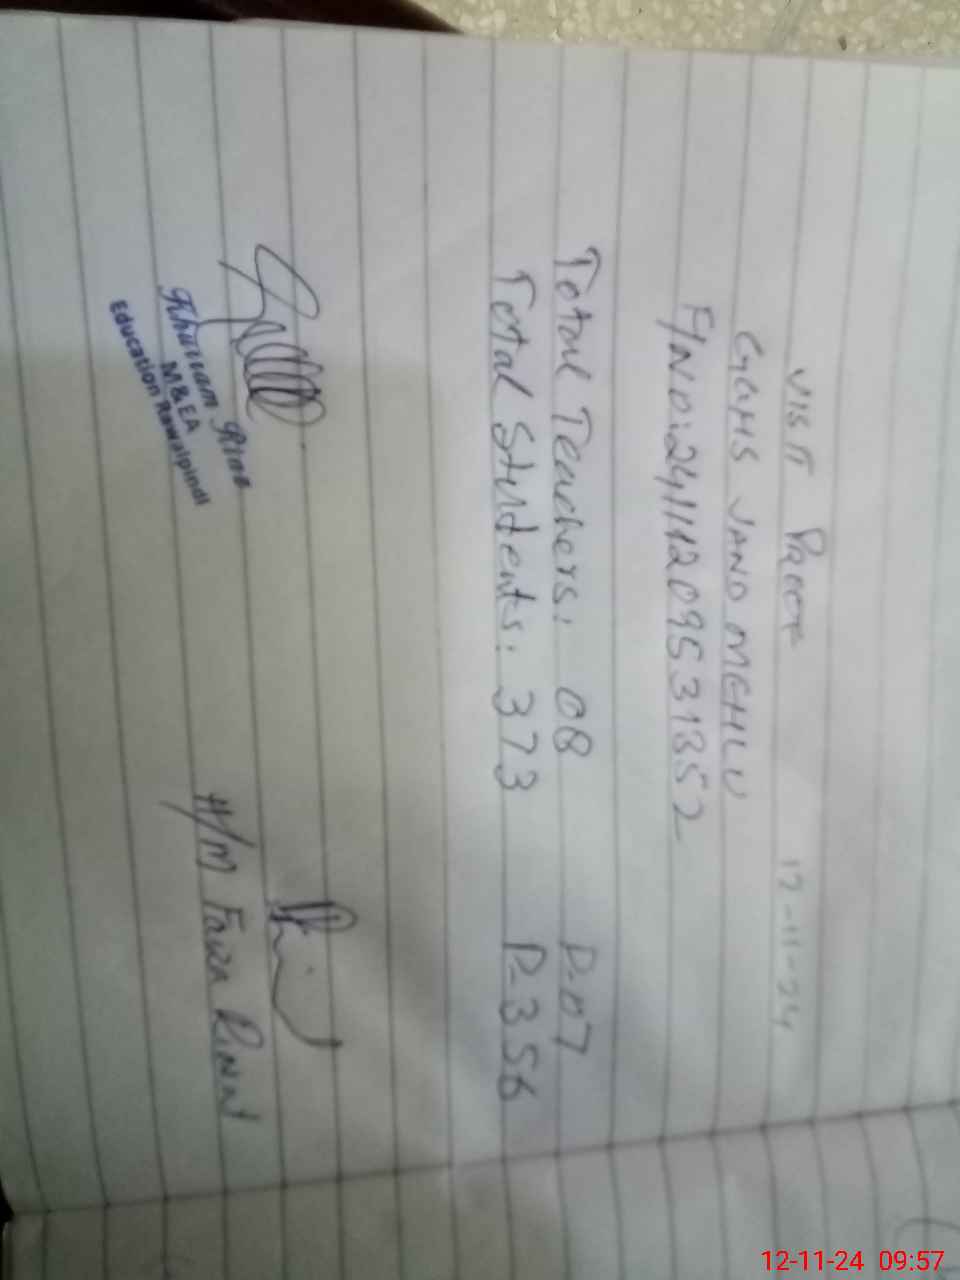 VISIT PROOF 12-11-24
GGHS JAND MEHLU
F/NO:24111209531352
Total Teachers: 08 P-07
Total Students: 373 P-356
Khurram
M&EA
Education Rawalpindi
H/M
12-11-24 09:57